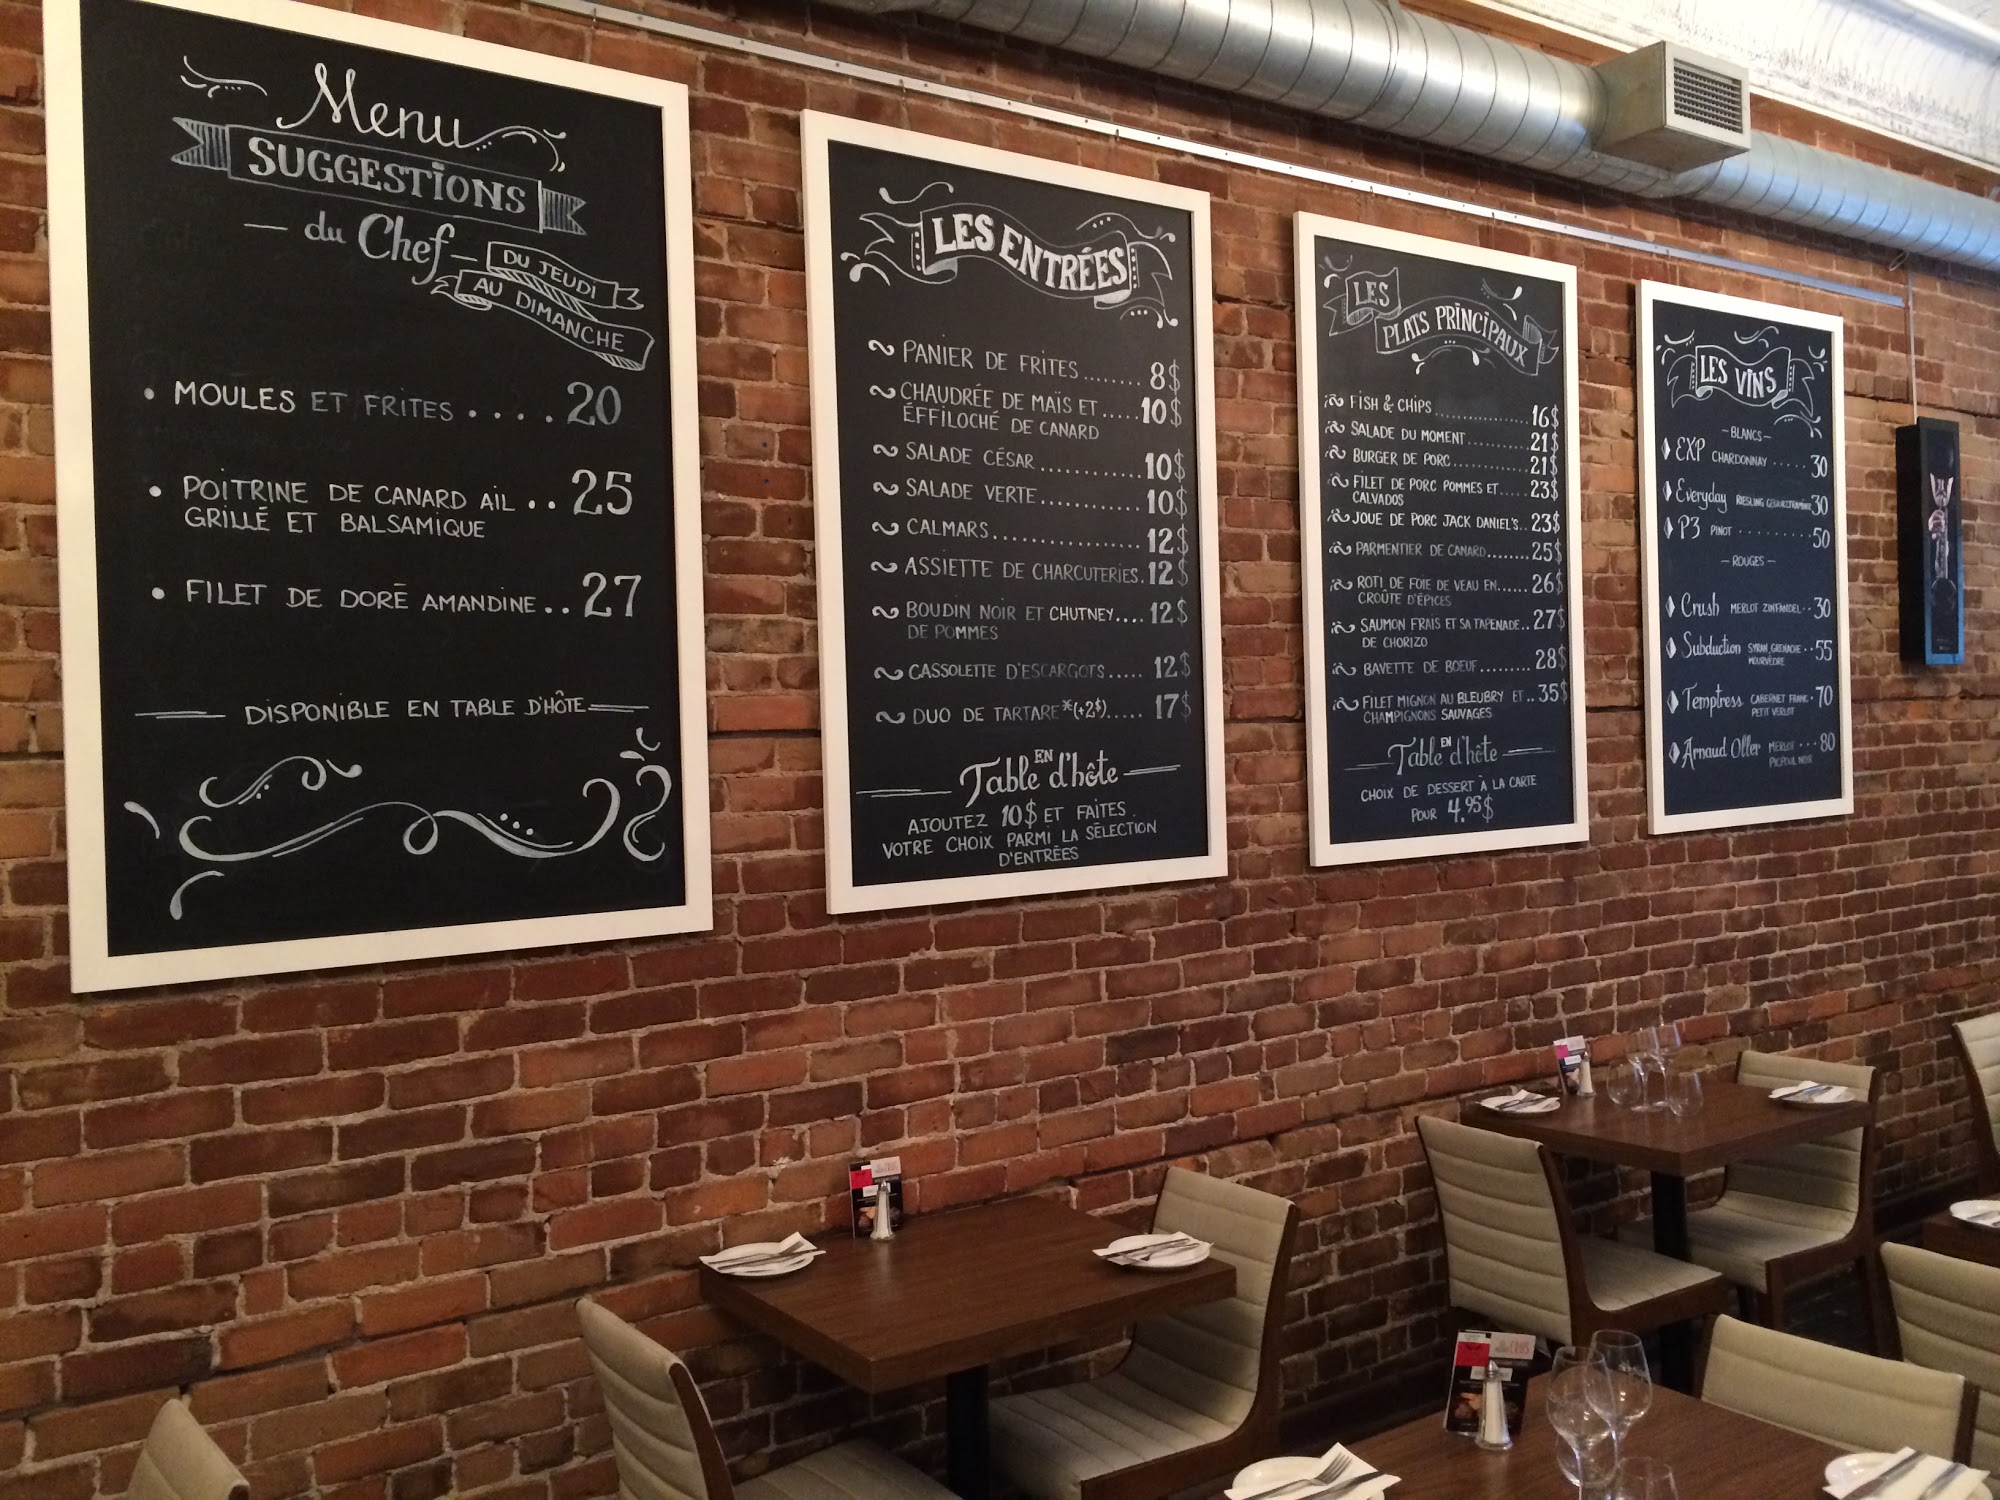 Menu
SUGGESTIONS
- du Chef -
DU JEUDI
AU DIMANCHE
• MOULES ET FRITES .... 20
• POITRINE DE CANARD AIL .. 25
GRILLÉ ET BALSAMIQUE
• FILET DE DORÉ AMANDINE .. 27
DISPONIBLE EN TABLE D'HÔTE
LES ENTRÉES
PANIER DE FRITES ........ 8$
CHAUDRÉE DE MAÏS ET ..... 10$
ÉFFILOCHÉ DE CANARD
SALADE CÉSAR ............ 10$
SALADE VERTE ............ 10$
CALMARS ................. 12$
ASSIETTE DE CHARCUTERIES. 12$
BOUDIN NOIR ET CHUTNEY.... 12$
DE POMMES
CASSOLETTE D'ESCARGOTS..... 12$
DUO DE TARTARE*(+2$)..... 17$
EN
Table d'hôte
AJOUTEZ 10$ ET FAITES
VOTRE CHOIX PARMI LA SÉLECTION
D'ENTRÉES
LES
PLATS PRINCIPAUX
FISH & CHIPS .............. 16$
SALADE DU MOMENT........... 21$
BURGER DE PORC............. 21$
FILET DE PORC POMMES ET..... 23$
CALVADOS
JOUE DE PORC JACK DANIEL'S.. 23$
PARMENTIER DE CANARD........ 25$
ROTI DE FOIE DE VEAU EN...... 26$
CROÛTE D'ÉPICES
SAUMON FRAIS ET SA TAPENADE.. 27$
DE CHORIZO
BAVETTE DE BOEUF......... 28$
FILET MIGNON AU BLEUBRY ET .. 35$
CHAMPIGNONS SAUVAGES
EN
Table d'hôte
CHOIX DE DESSERT À LA CARTE
POUR 4.95$
LES VINS
- BLANCS -
EXP CHARDONNAY ..... 30
Everyday RIESLING GEWURZTRAMINER 30
P3 PINOT ......... 50
- ROUGES -
Crush MERLOT ZINFANDEL .. 30
Subduction SYRAH, GRENACHE .. 55
MOURVÈDRE
Temptress CABERNET FRANC . 70
PETIT VERLOT
Arnaud Oller MERLOT ... 80